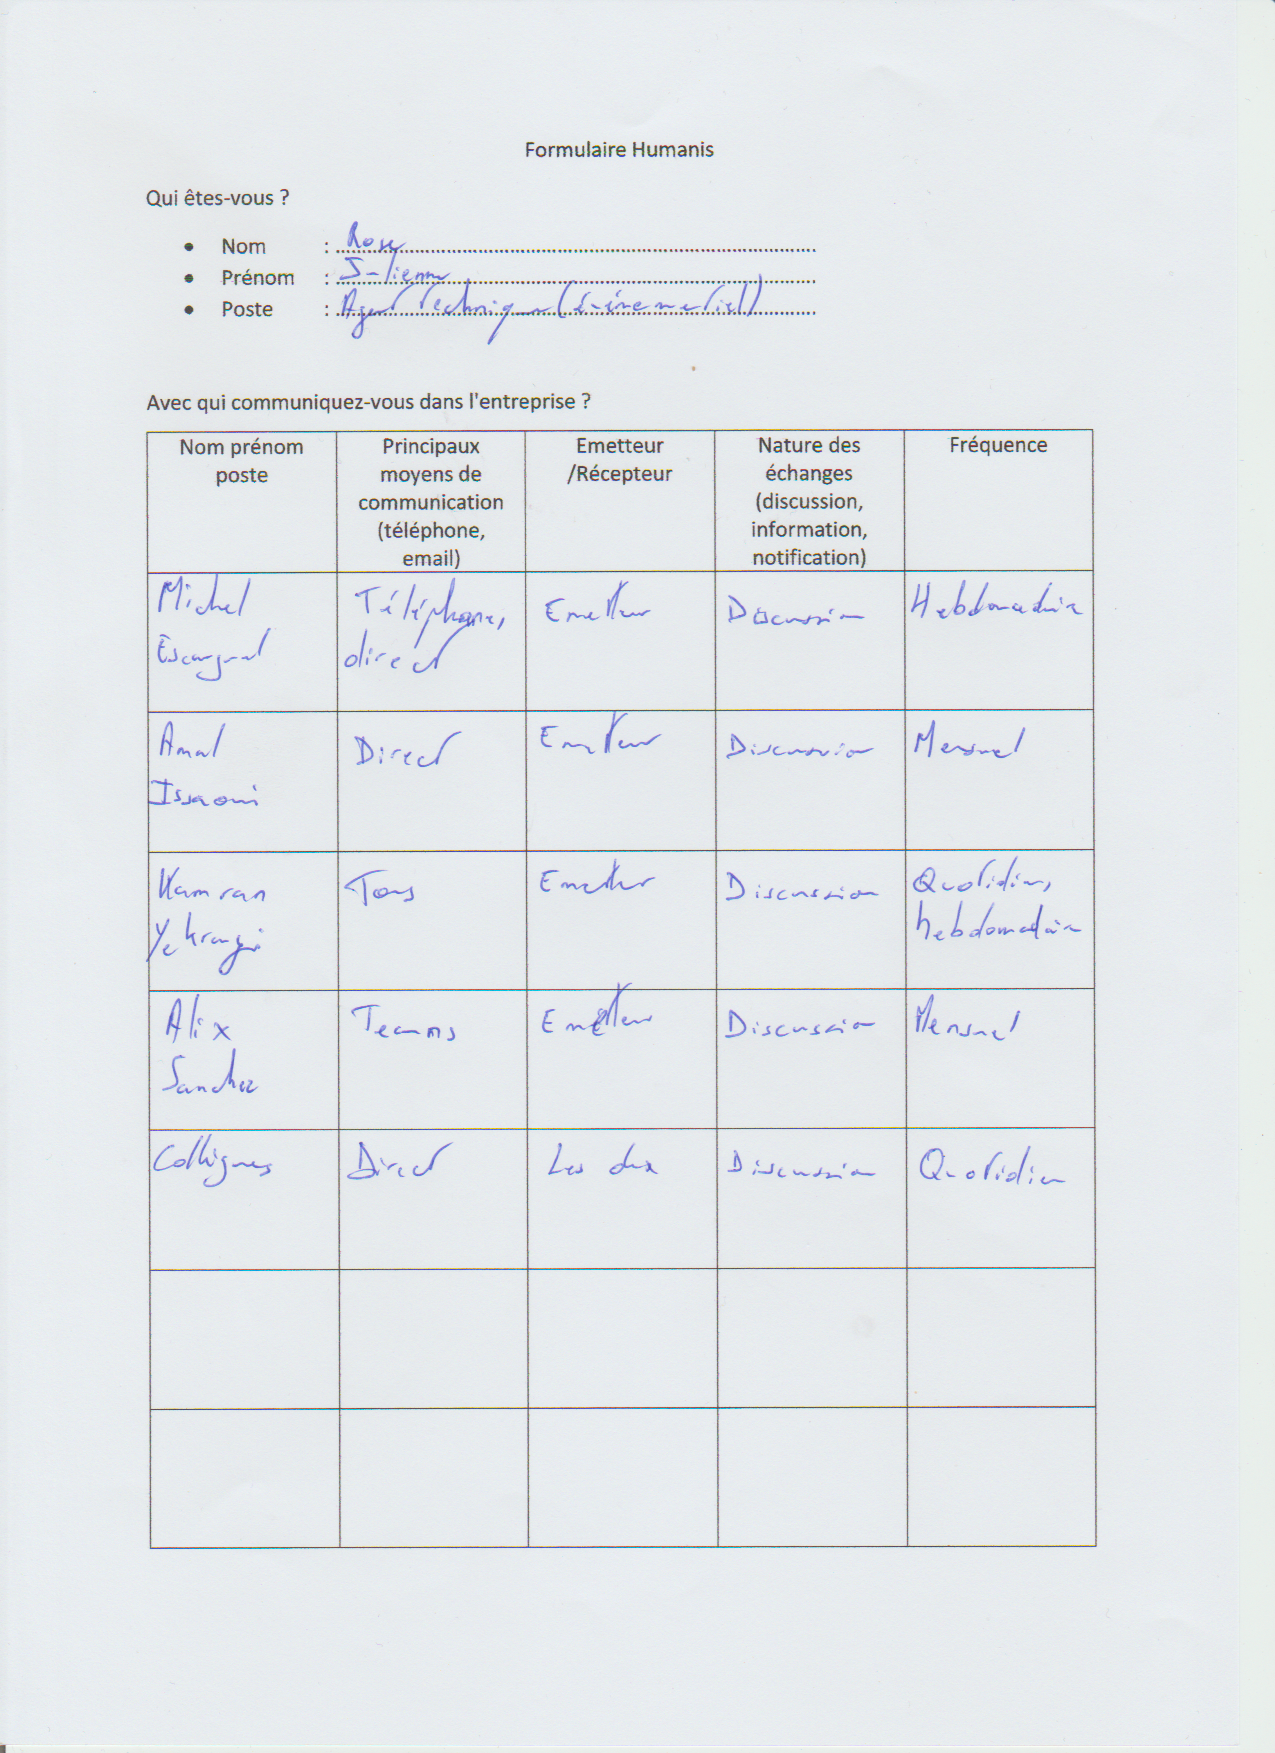 Formulaire Humanis
Qui êtes-vous ?
• Nom : Rose
• Prénom : Julienne
• Poste : Agent Technique (événementiel)
Avec qui communiquez-vous dans l'entreprise ?
Nom prénom
poste
Principaux
moyens de
communication
(téléphone,
email)
Emetteur
/Récepteur
Nature des
échanges
(discussion,
information,
notification)
Fréquence
Michel
Escargnal
Téléphone,
direct
Emetteur
Discussion
Hebdomadaire
Amal
Issaoui
Direct
Emetteur
Discussion
Mensuel
Kamran
Yekrangi
Tous
Emetteur
Discussion
Quotidien,
hebdomadaire
Alix
Sanchez
Teams
Emetteur
Discussion
Mensuel
Collègues
Direct
Les deux
Discussion
Quotidien